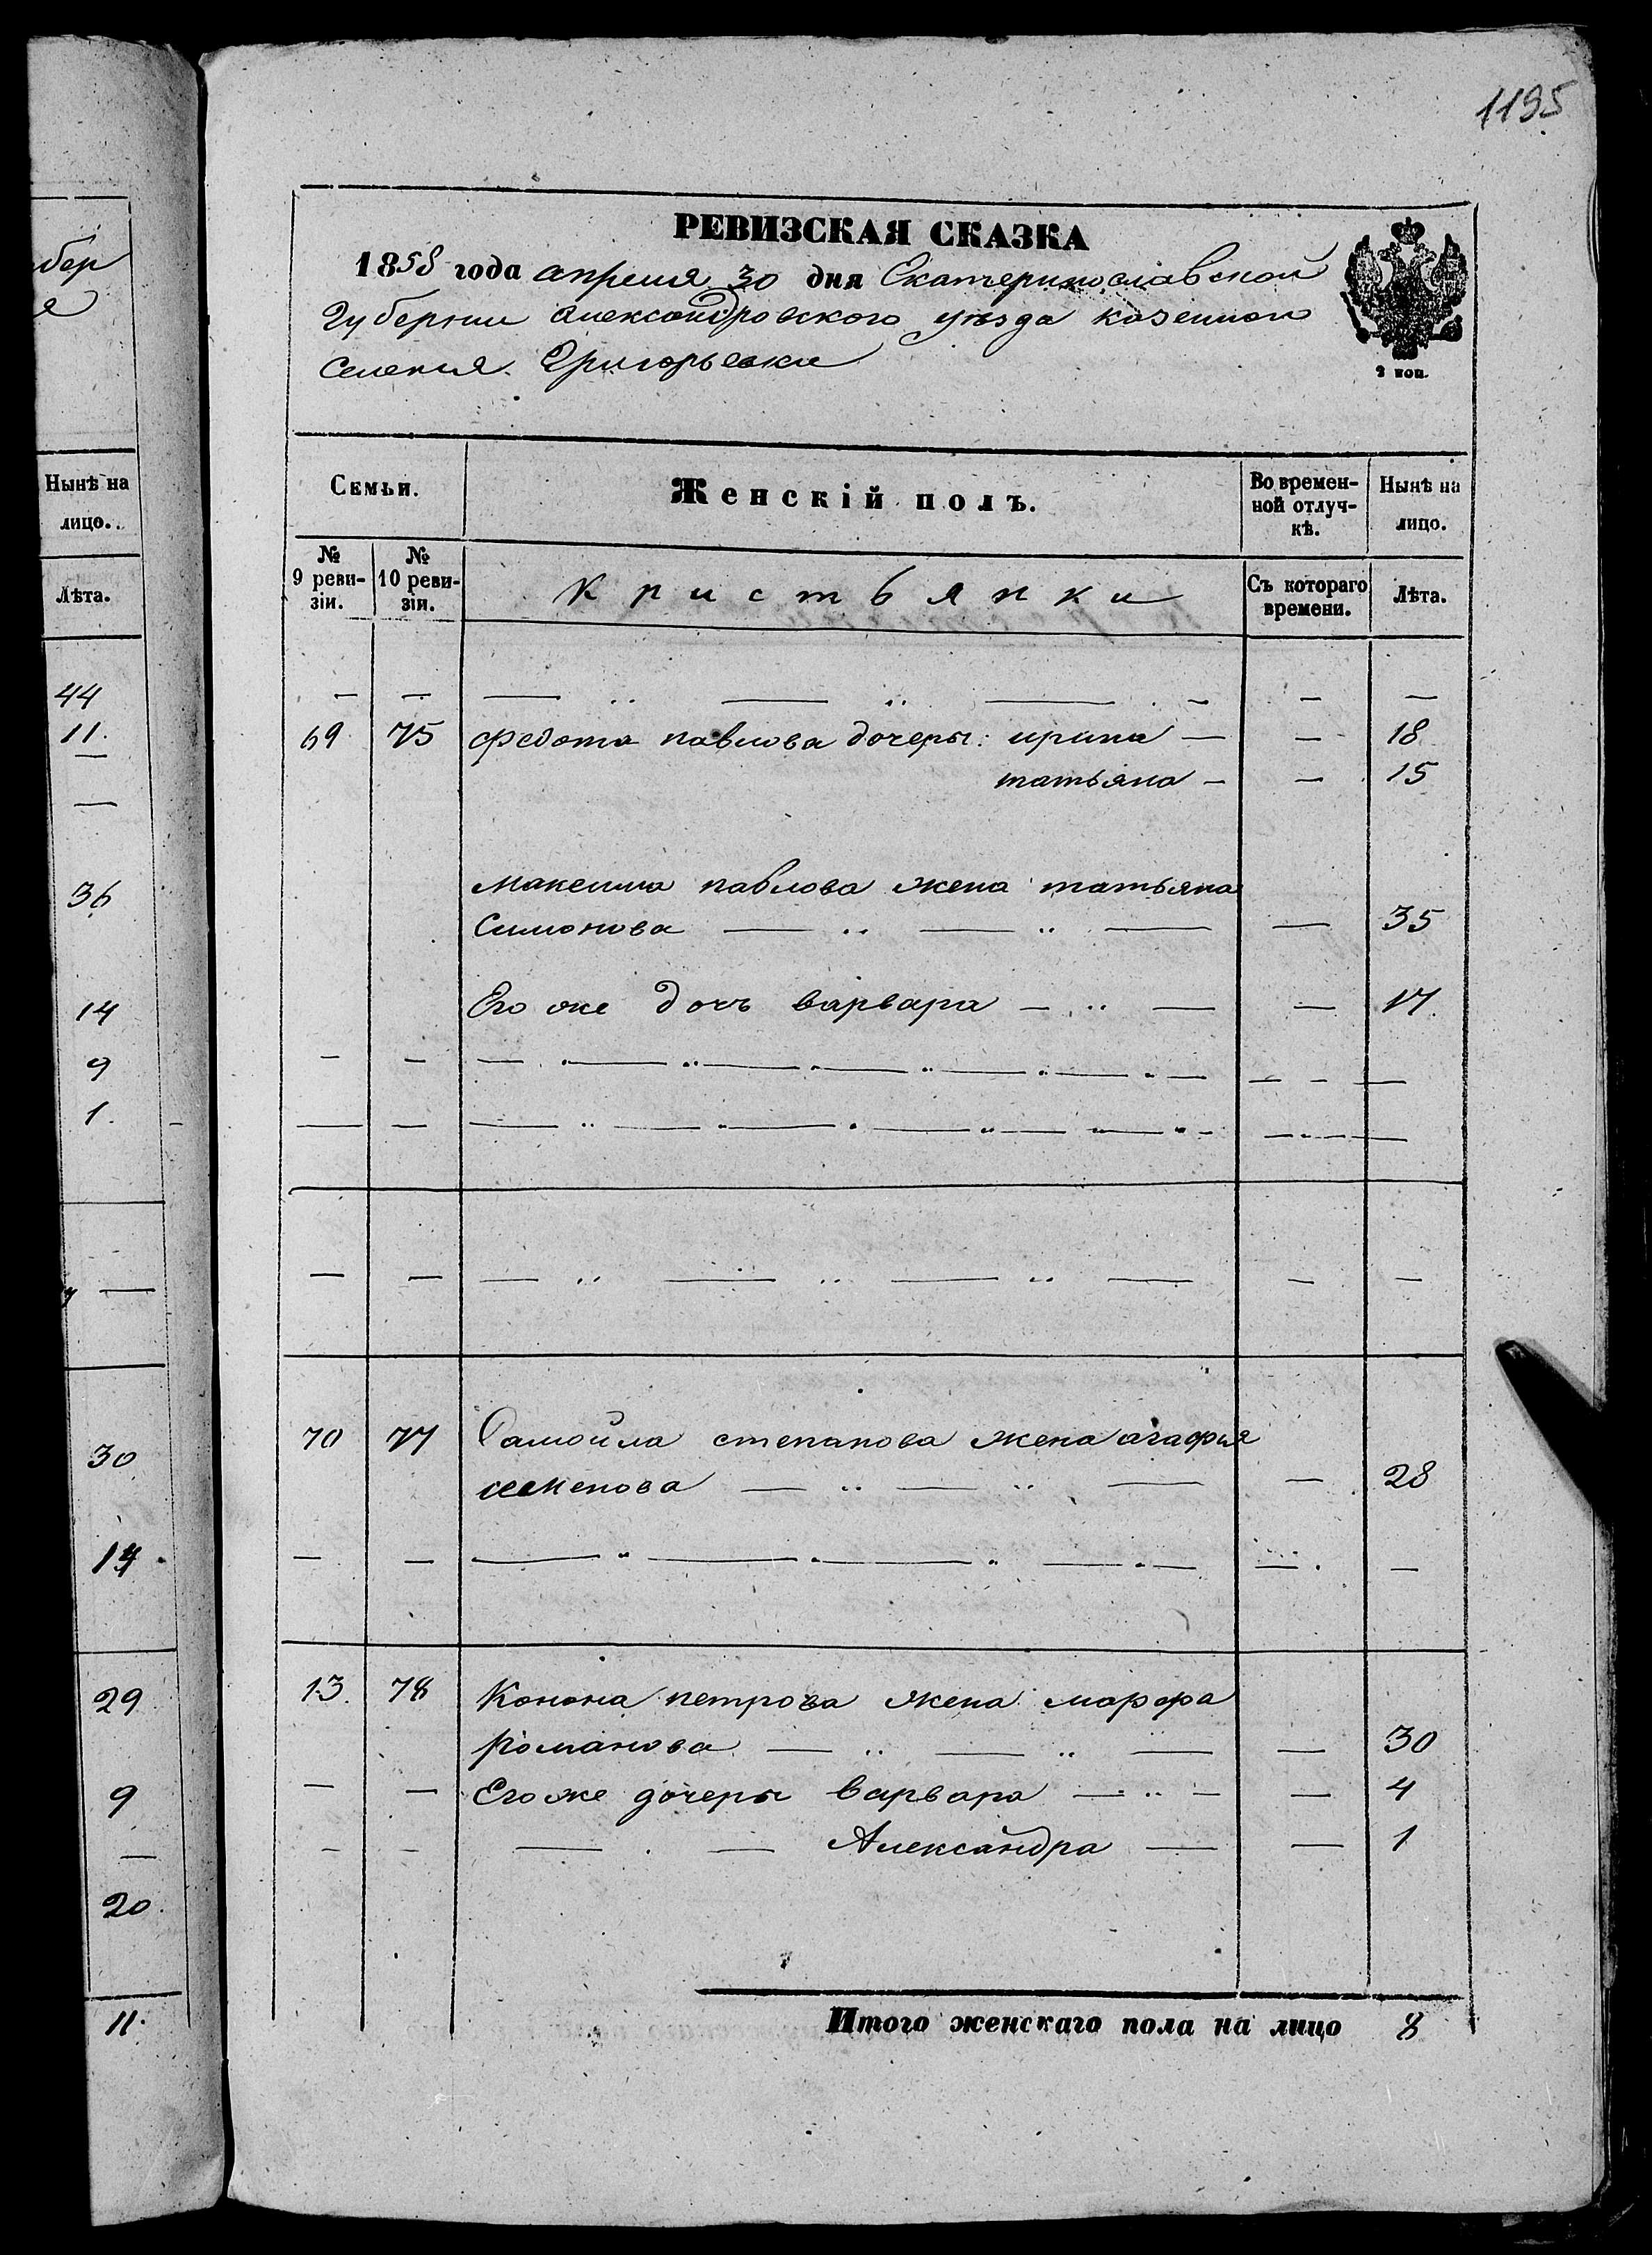 1195
РЕВИЗСКАЯ СКАЗКА
1858 года апреля 30 дня Екатеринославской
Губернии Александровского уезда казенного
Селения Григорьевки
2 коп.
Семьи.
Женскій полъ.
Во времен-
ной отлуч-
кѣ.
Нынѣ на
лицо.
№
9 реви-
зіи.
№
10 реви-
зіи.
Кристьянки
Съ котораго
времени.
Лѣта.
69 75 Федота павлова дочеры: ирина — — 18
татьяна — — 15
максима павлова жена татьяна
Симонова — „ — „ — — 35
Его же дочь варвара — „ — — 17
70 77 Самойла степанова жена агафия
семенова — „ — „ — — 28
13. 78 Конона петрова жена марфа
романова — „ — „ — — 30
Его же дочеры варвара — „ — — 4
Александра — — 1
Итого женскаго пола на лицо 8
бер
я
Нынѣ на
лицо.
Лѣта.
44
11.
36
14
9
1.
30
29
9
20.
11.